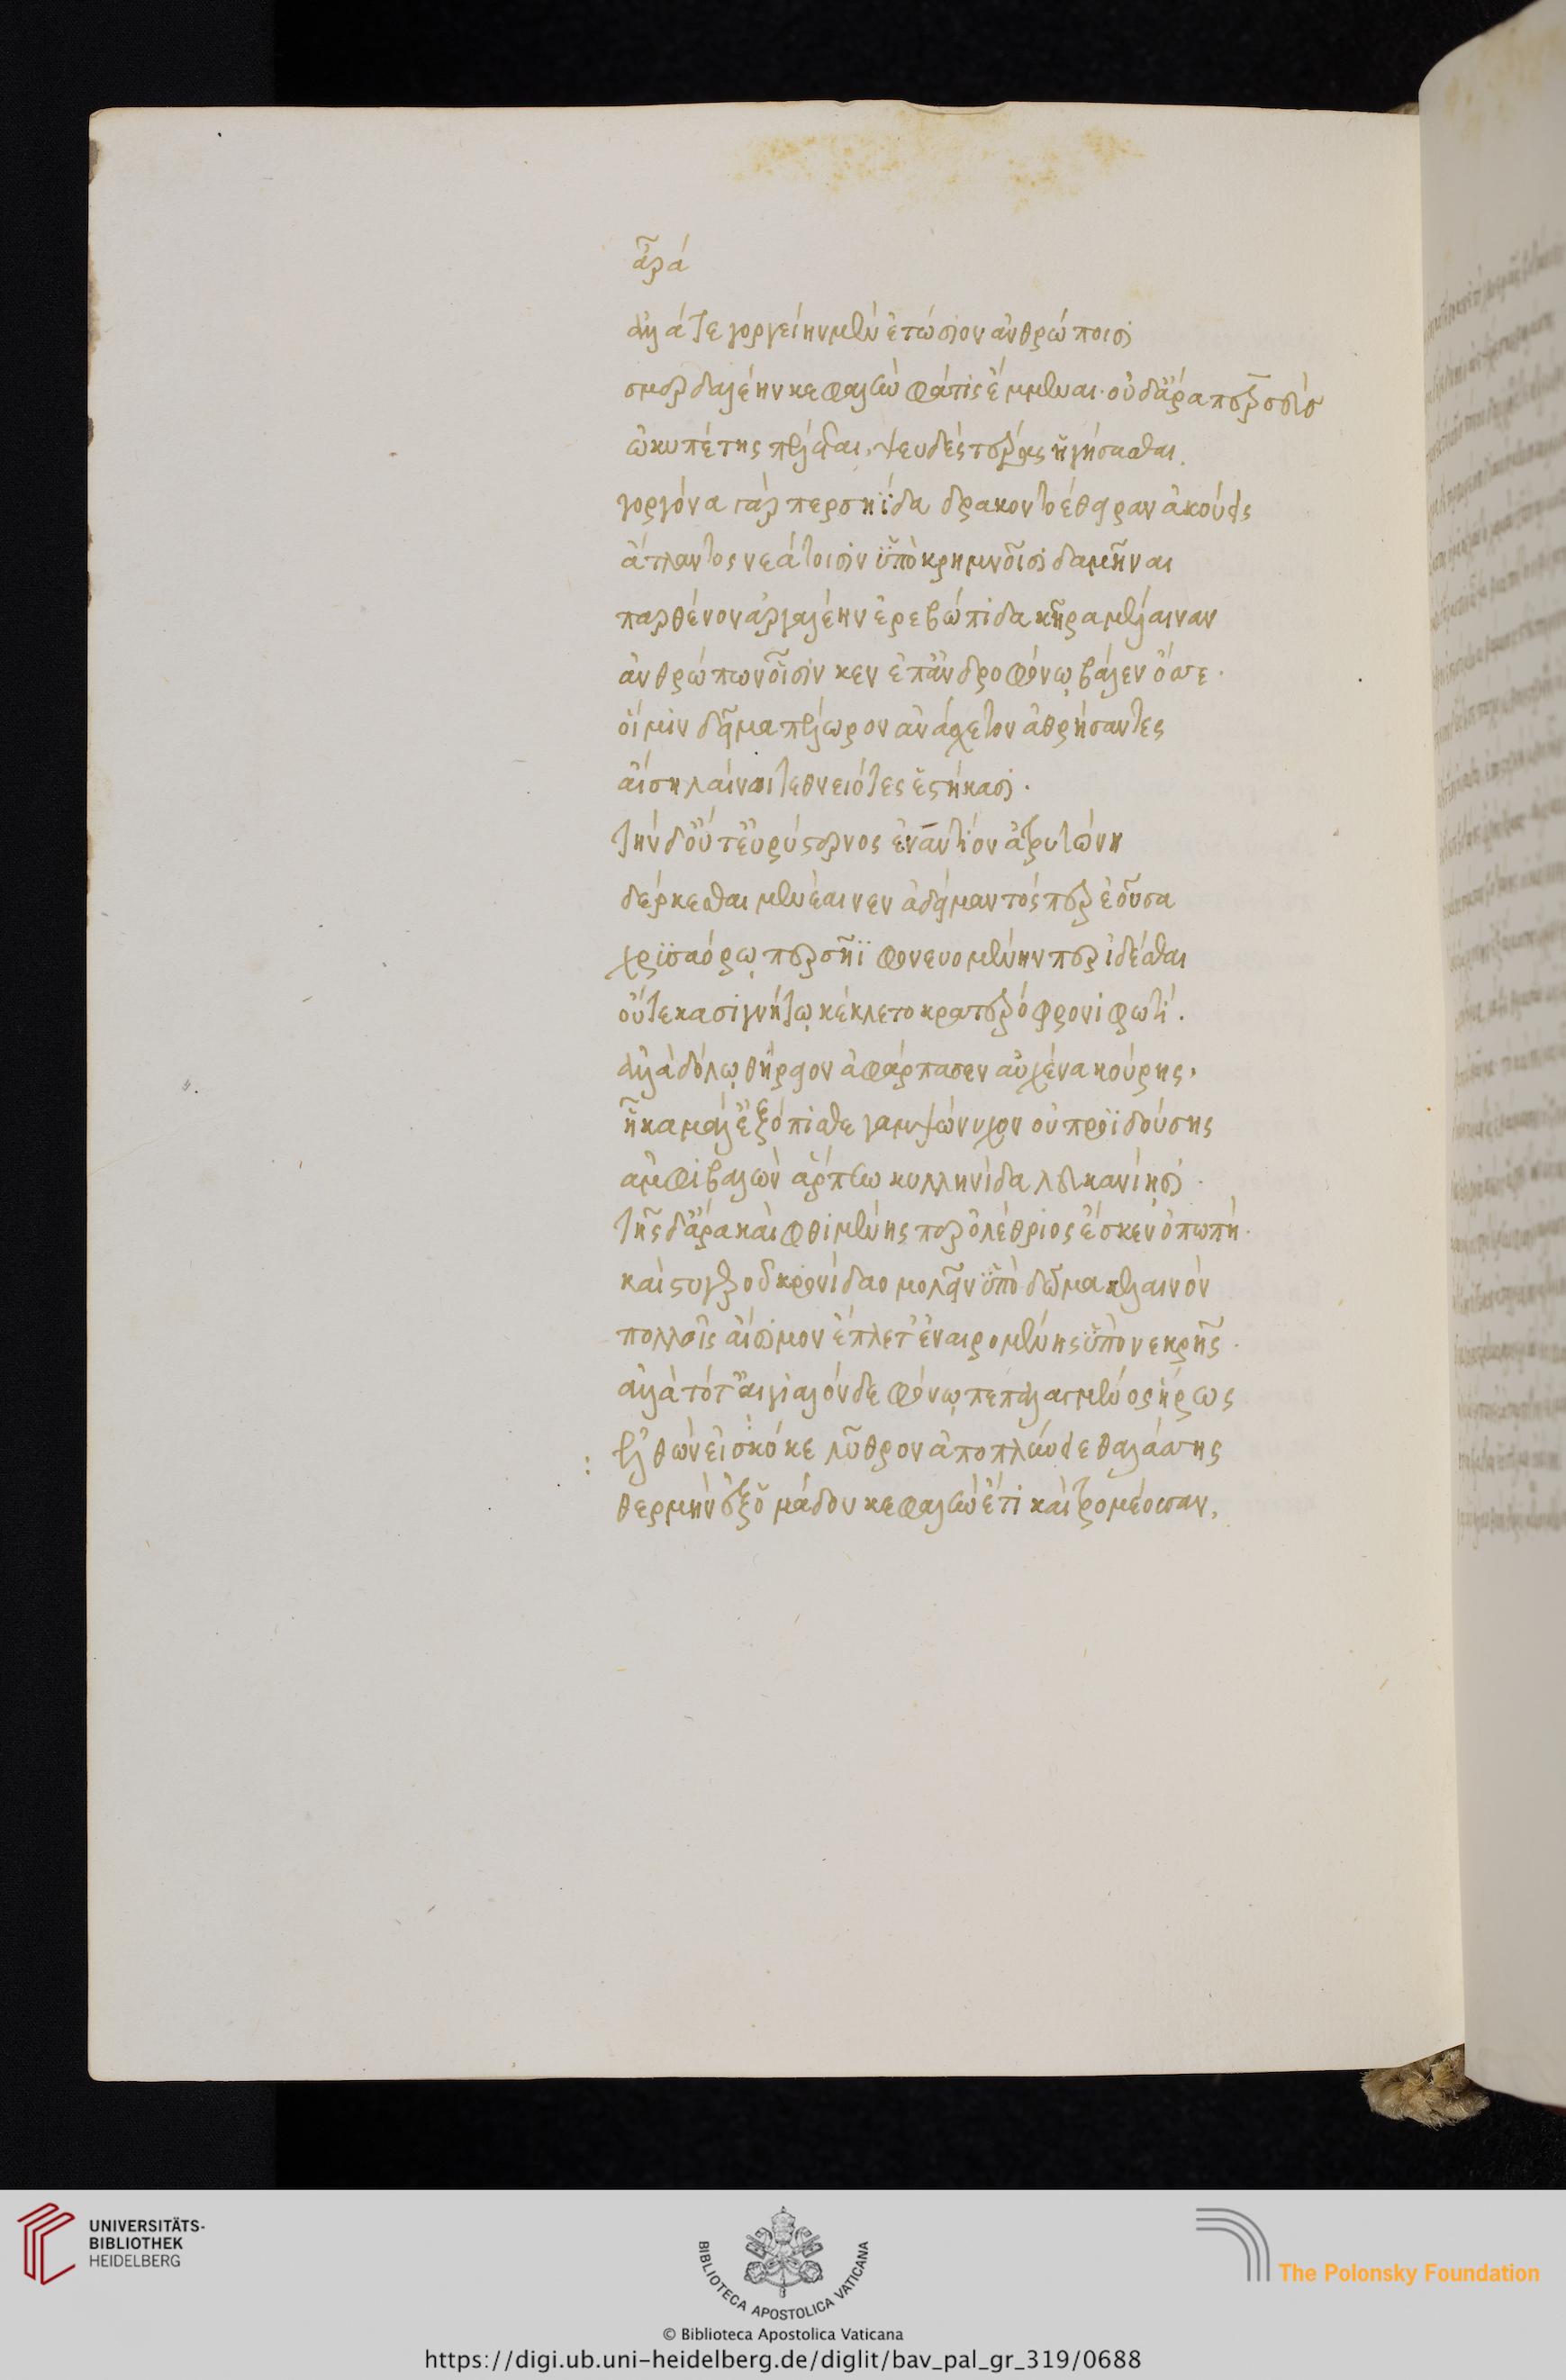 ἆρά
ἀλλά τε γοργείην μὲν ἐτώσιον ἀνθρώποισι
σμερδαλέην κεφαλὴν φάτις ἔμμεναι· οὐδ' ἄρα περσεὺς
ὠκυπέτης πέλεται, ψευδέστερος ἡγήσασθαι.
γοργόνα γὰρ περσηΐδα δρακοντοέθειραν ἀκούεις
ἄτλαντος νεάτοισιν ὑπὸ κρημνοῖσι δαμῆναι
παρθένον ἀργαλέην ἐρεβώπιδα κῆρα μέλαιναν
ἀνθρώπων οἷσίν κεν ἐπ' ἀνδροφόνω βάλεν ὄσσε·
οἵ μιν δεῖμα πέλωρον ἀνάσχετον ἀθρήσαντες
αἴση λαίνοι τεθνειότες ἑστήκασι·
τὴν δ' οὔτ' εὐρύστερνος ἐναντίον ἀτρυτώνη
δέρκεσθαι μενέαινεν ἀδάμαντός περ ἐοῦσα
χρυσαόρω περσῆϊ φονευομένην περ ἰδέσθαι
οὔτε κασιγνήτω κέκλετο κρατερόφρονι φωτί.
ἀλλὰ δόλω θήρειον ἀφάρπασεν αὐχένα κούρης,
ἦκα μάλ' ἐξόπισθε γαμψώνυχον οὐ προϊδούσης
ἀμφιβαλὼν ἅρπην κυλληνίδα λευκανίησι·
τῆς δ' ἄρα καὶ φθιμένης περ ὀλέθριος ἔσκεν ὀπωπή·
καὶ στυγερὸν κρονίδαο μολεῖν ὑπὸ δῶμα κελαινὸν
πολλοῖς αἴσιμον ἔπλετ' ἐναιρομένης ὑπὸ νεκρῆς·
ἀλλὰ τότ' αἰγιαλόνδε φόνω πεπαλαγμένος ἥρως
ἐλθὼν εἰσκόκε λῦθρον ἀποπλύνειε θαλάσσης
θερμὴν ὀξὺ μάδου κεφαλὴν ἔτι καὶ τρομέουσαν,
UNIVERSITÄTS-
BIBLIOTHEK
HEIDELBERG
BIBLIOTECA APOSTOLICA VATICANA
The Polonsky Foundation
© Biblioteca Apostolica Vaticana
https://digi.ub.uni-heidelberg.de/diglit/bav_pal_gr_319/0688